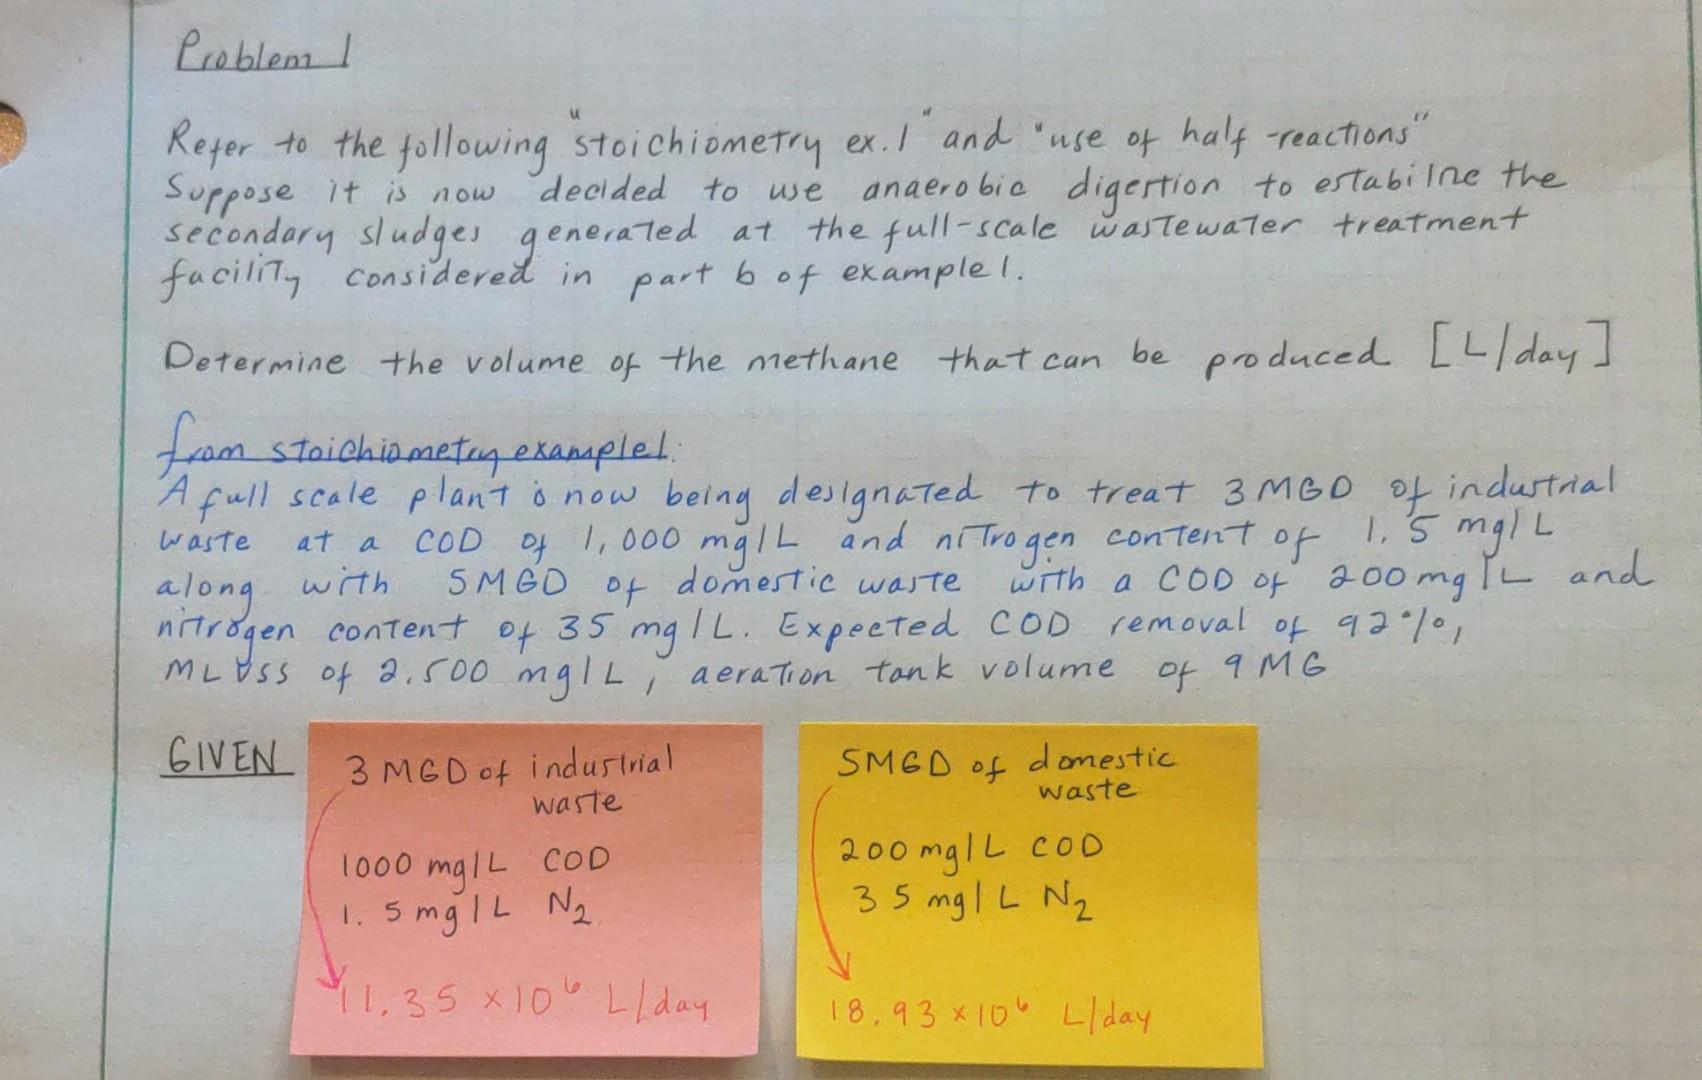 Problem 1
Refer to the following "stoichiometry ex. 1" and "use of half-reactions"
Suppose it is now decided to use anaerobic digestion to estabilne the
secondary sludges generated at the full-scale wastewater treatment
facility considered in part b of example 1.
Determine the volume of the methane that can be produced [L/day]
from stoichiometry example 1:
A full scale plant is now being designated to treat 3 MGD of industrial
waste at a COD of 1,000 mg/L and nitrogen content of 1.5 mg/L
along with 5MGD of domestic waste with a COD of 200 mg/L and
nitrogen content of 35 mg/L. Expected COD removal of 92%,
MLVSS of 2.500 mg/L, aeration tank volume of 9 MG
GIVEN
3 MGD of industrial
waste
1000 mg/L COD
1.5 mg/L N2
11.35 x10^6 L/day
5MGD of domestic
waste
200 mg/L COD
35 mg/L N2
18.93 x 10^6 L/day